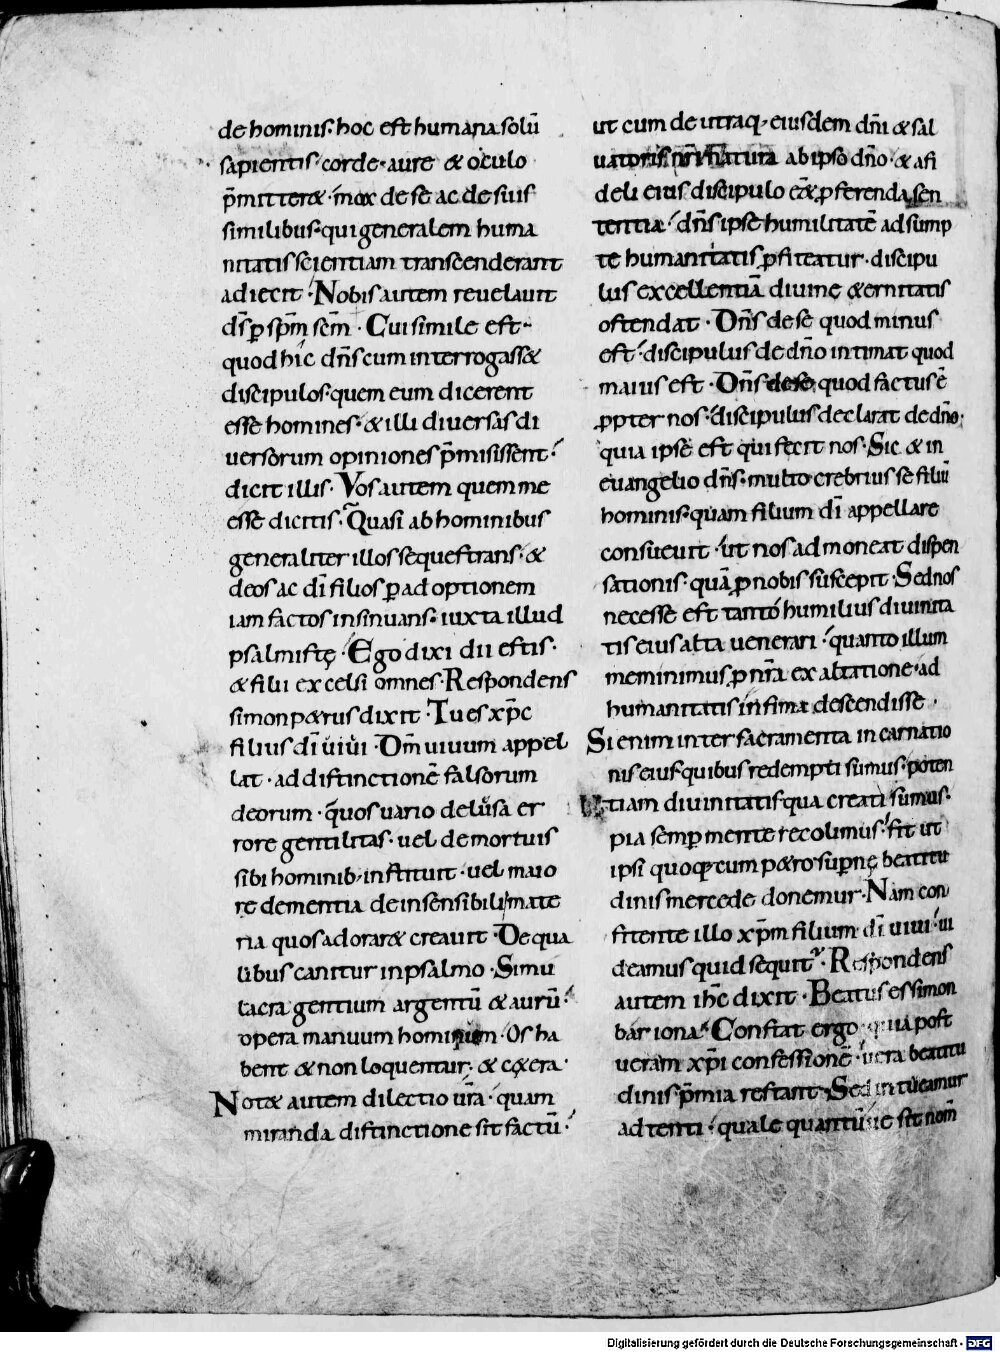 de hominis· hoc est humana solū
sapientis· corde· aure & oculo
p̄mitteret· mox de se ac de suis
similibus· qui generalem huma
nitatis scientiam transcenderant
adiecit· Nobis autem reuelauit
d̄s p̱ sp̄m sc̄m· Cui simile est
quod hic dn̄s cum interrogass&
discipulos· quem eum dicerent
esse homines· & illi diuersas di
uersorum opiniones p̄misissent·
dicit illis· Vos autem quem me
esse dicitis· Quasi ab hominibus
generaliter illos sequestrans· &
deos ac dī filios p̱ adoptionem
iam factos insinuans· iuxta illud
psalmistę· Ego dixi dii estis·
& filii excelsi omnes· Respondens
simon p&rus dixit· Tu es xp̄c
filius dī uiui· Dm̄ uiuum appel
lat· ad distinctionē falsorum
deorum· quos uario delusa er
rore gentilitas· uel de mortuis
sibi hominib; instituit· uel maio
re dementia de insensibili mate
ria quos adorar& creauit· De qua
libus canitur in psalmo· Simu
lacra gentium argentū & aurū·
opera manuum hominum· Os ha
bent & non loquentur· & c&era·
Not& autem dilectio ur̄a· quam
miranda distinctione sit factū·
ut cum de utraq; eiusdem dn̄i & sal
uatoris nr̄i natura ab ipso dn̄o· & a fi
deli eius discipulo e&̄ p̱ferenda sen
tentia· dn̄s ipse humilitatē adsump
te humanitatis p̱fiteatur· discipu
lus excellentiā diuinę &ernitatis
ostendat· Dn̄s de se quod minus
est· discipulus de dn̄o intimat quod
maius est· Dn̄s de se quod factus ē
p̱pter nos· discipulus declarat de dn̄o·
quia ipse est qui fecit nos· Sic & in
euangelio dn̄s· multo crebrius se filiū
hominis· quam filium dī appellare
consueuit· ut nos admoneat dispen
sationis· quā p̱ nobis suscepit· Sed nos
necesse est tanto humilius diuinita
tis eius alta uenerari· quanto illum
meminimus p̱ nr̄a exaltatione· ad
humanitatis infima descendisse·
Si enim inter sacramenta incarnatio
nis eius quibus redempti sumus· poten
tiam diuinitatis qua creati sumus·
pia semp̱ mente recolimus· fit ut
ipsi quoq; cum p&ro supernę beatitu
dinis mercede donemur· Nam con
fitente illo xp̄m filium dī uiui· ui
deamus quid sequit̃· Respondens
autem ih̄c dixit· Beatus es simon
bar iona· Constat ergo quia post
ueram xp̄i confessionē· uera beatitu
dinis p̄mia restant· Sed intueamur
ad tenti· quale quantū ue sit nom̄